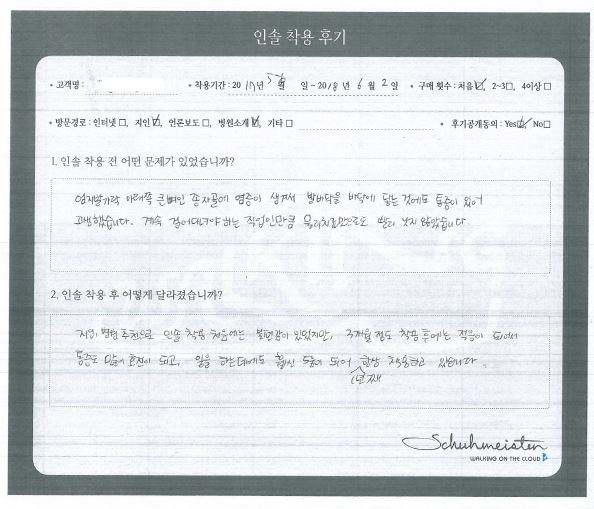 인솔 착용 후기
• 고객명 :
• 착용기간 : 20 17 년 5월 일 ~ 2018 년 6 월 2 일
• 구매 횟수 : 처음☑, 2~3☐, 4이상☐
• 방문경로 : 인터넷☐, 지인☑, 언론보도☐, 병원소개☑, 기타☐
• 후기공개동의 : Yes☑, No☐
1. 인솔 착용 전 어떤 문제가 있었습니까?
엄지발가락 아래쪽 큰뼈인 종자골에 염증이 생겨서 발바닥을 바닥에 닿는 것에도 통증이 있어
고생했습니다. 계속 걸어다녀야 하는 직업인만큼 물리치료만으로도 빨리 낫지 않았습니다.
2. 인솔 착용 후 어떻게 달라졌습니까?
지인, 병원 추천으로 인솔 착용 처음에는 불편감이 있었지만, 3개월 정도 착용 후에는 적응이 되어서
통증도 많이 호전이 되고, 일을 하는데에도 훨씬 도움이 되어 항상 착용하고 있습니다.
1년째
Schuhmeister
WALKING ON THE CLOUD